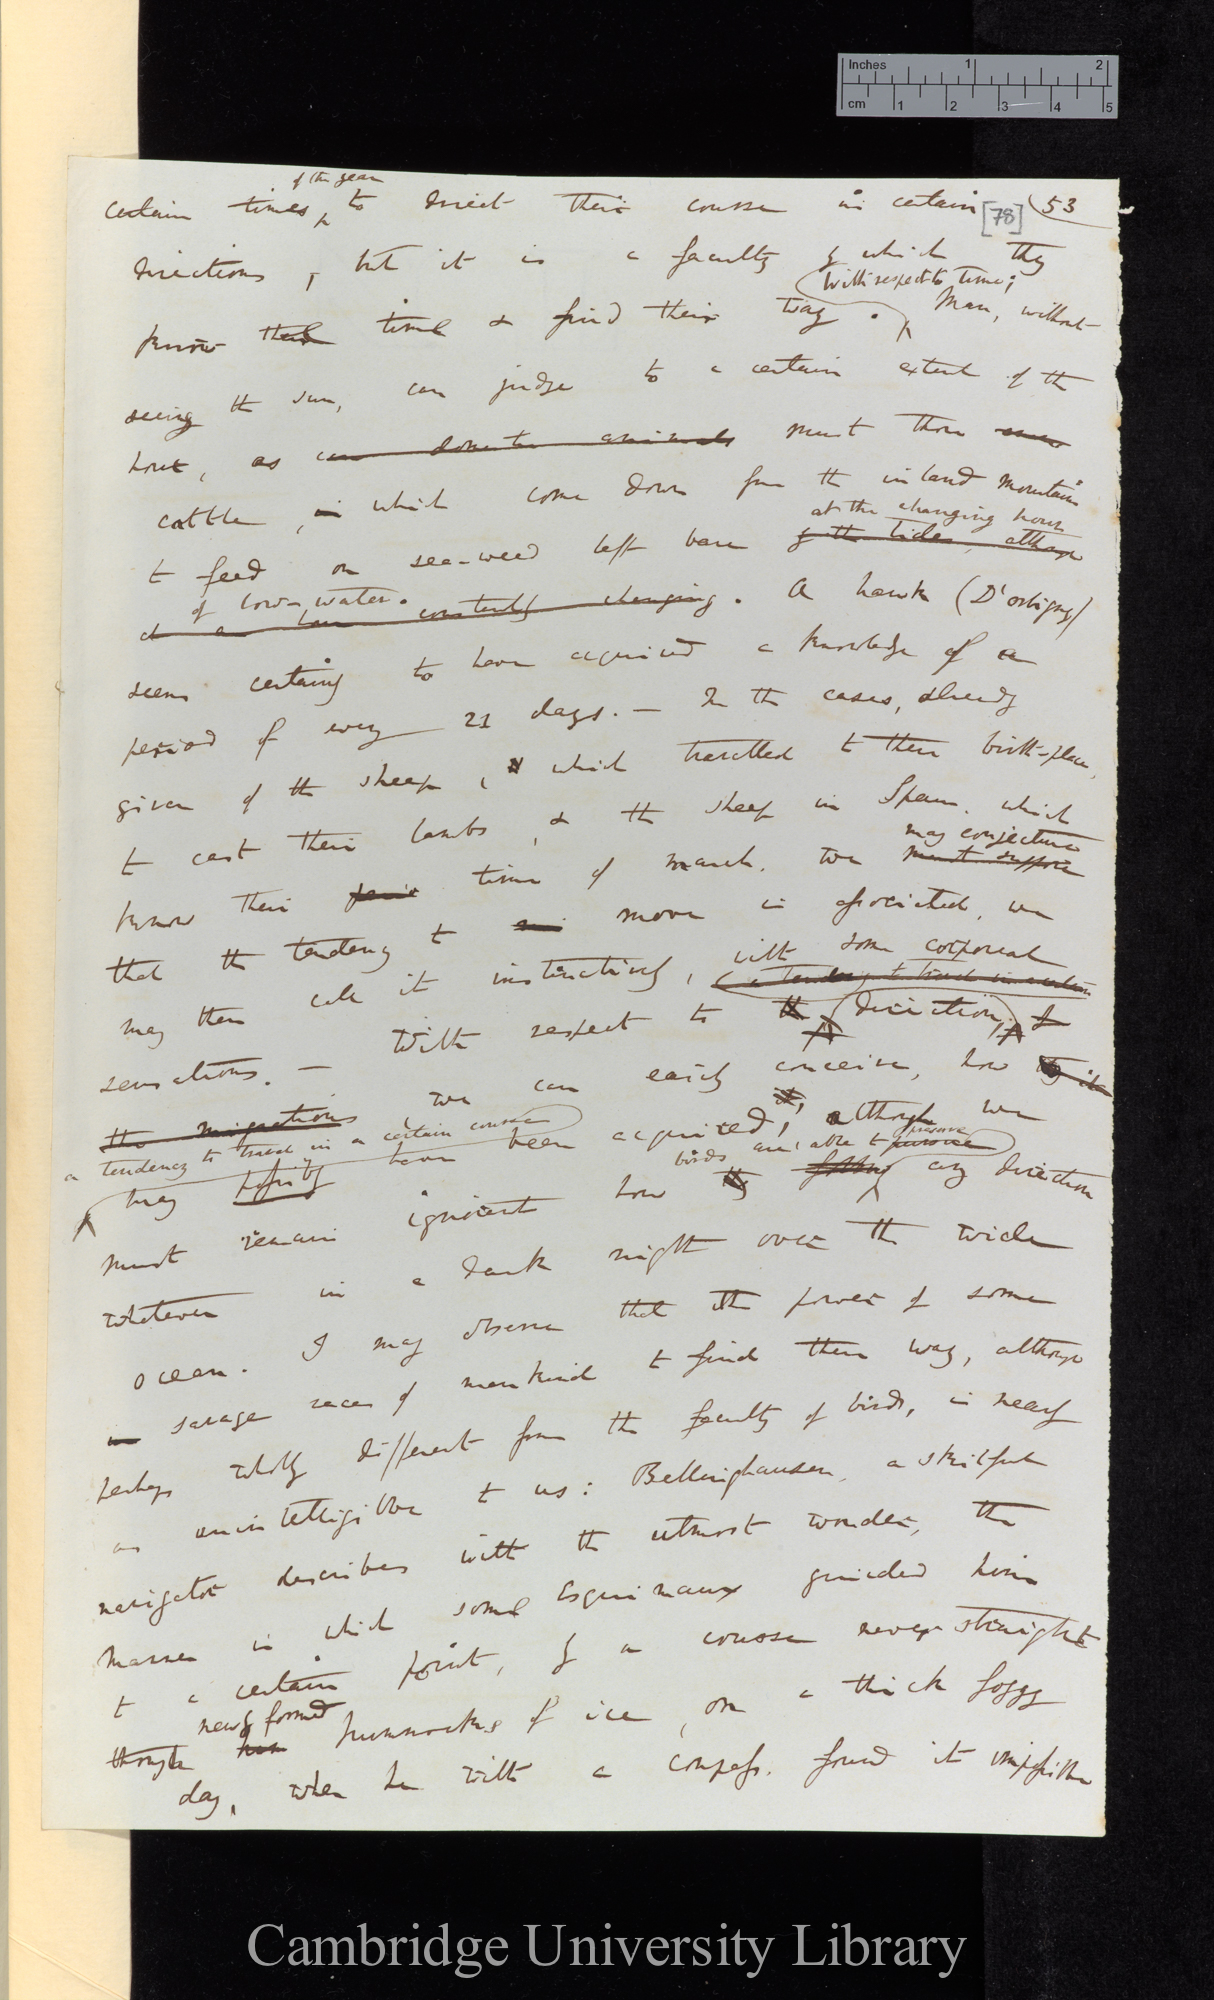 Inches 1 2
cm 1 2 3 4 5
of the year
certain times, to direct their course in certain [78] 53
directions, but it is a faculty by which they
with respect to time;
know their time & find their way. Man, without
seeing the sun, can judge to a certain extent of the
hour, as can domestic animals must those
cattle, in which come down from the inland mountains
at the changing hour
to feed on sea-weed left bare by the tides, although
of low-water.
at an hour constantly changing. A hawk (D'orbigny)
seems certainly to have acquired a knowledge of a
period of every 21 days. — In the cases, already
given of the sheep, which travelled to their birth-place,
to cast their lambs, & the sheep in Spain, which
may conjecture
know their time of march, we must suppose
that the tendency to move is associated, we
may then call it instinctively, with some corporeal
(a tendency to travel in a certain
sensations. — With respect to the direction, &
the migrations we can easily conceive, how
it,
a tendency to travel in a certain course
may possibly have been acquired, although we
birds are able to preserve pursue
must remain ignorant how they follow any direction
whatever in a dark night over the wide
ocean. I may observe that the power of some
in savage races of mankind to find their way, although
perhaps wholly different from the faculty of birds, is nearly
as unintelligible to us: Bellinghausen, a skilful
navigator describes with the utmost wonder, the
manner in which some Esquimaux guided him
to a certain point, by a course never straight
newly formed
through hummocks of ice, on a thick foggy
day, when he with a compass, found it impossible
Cambridge University Library